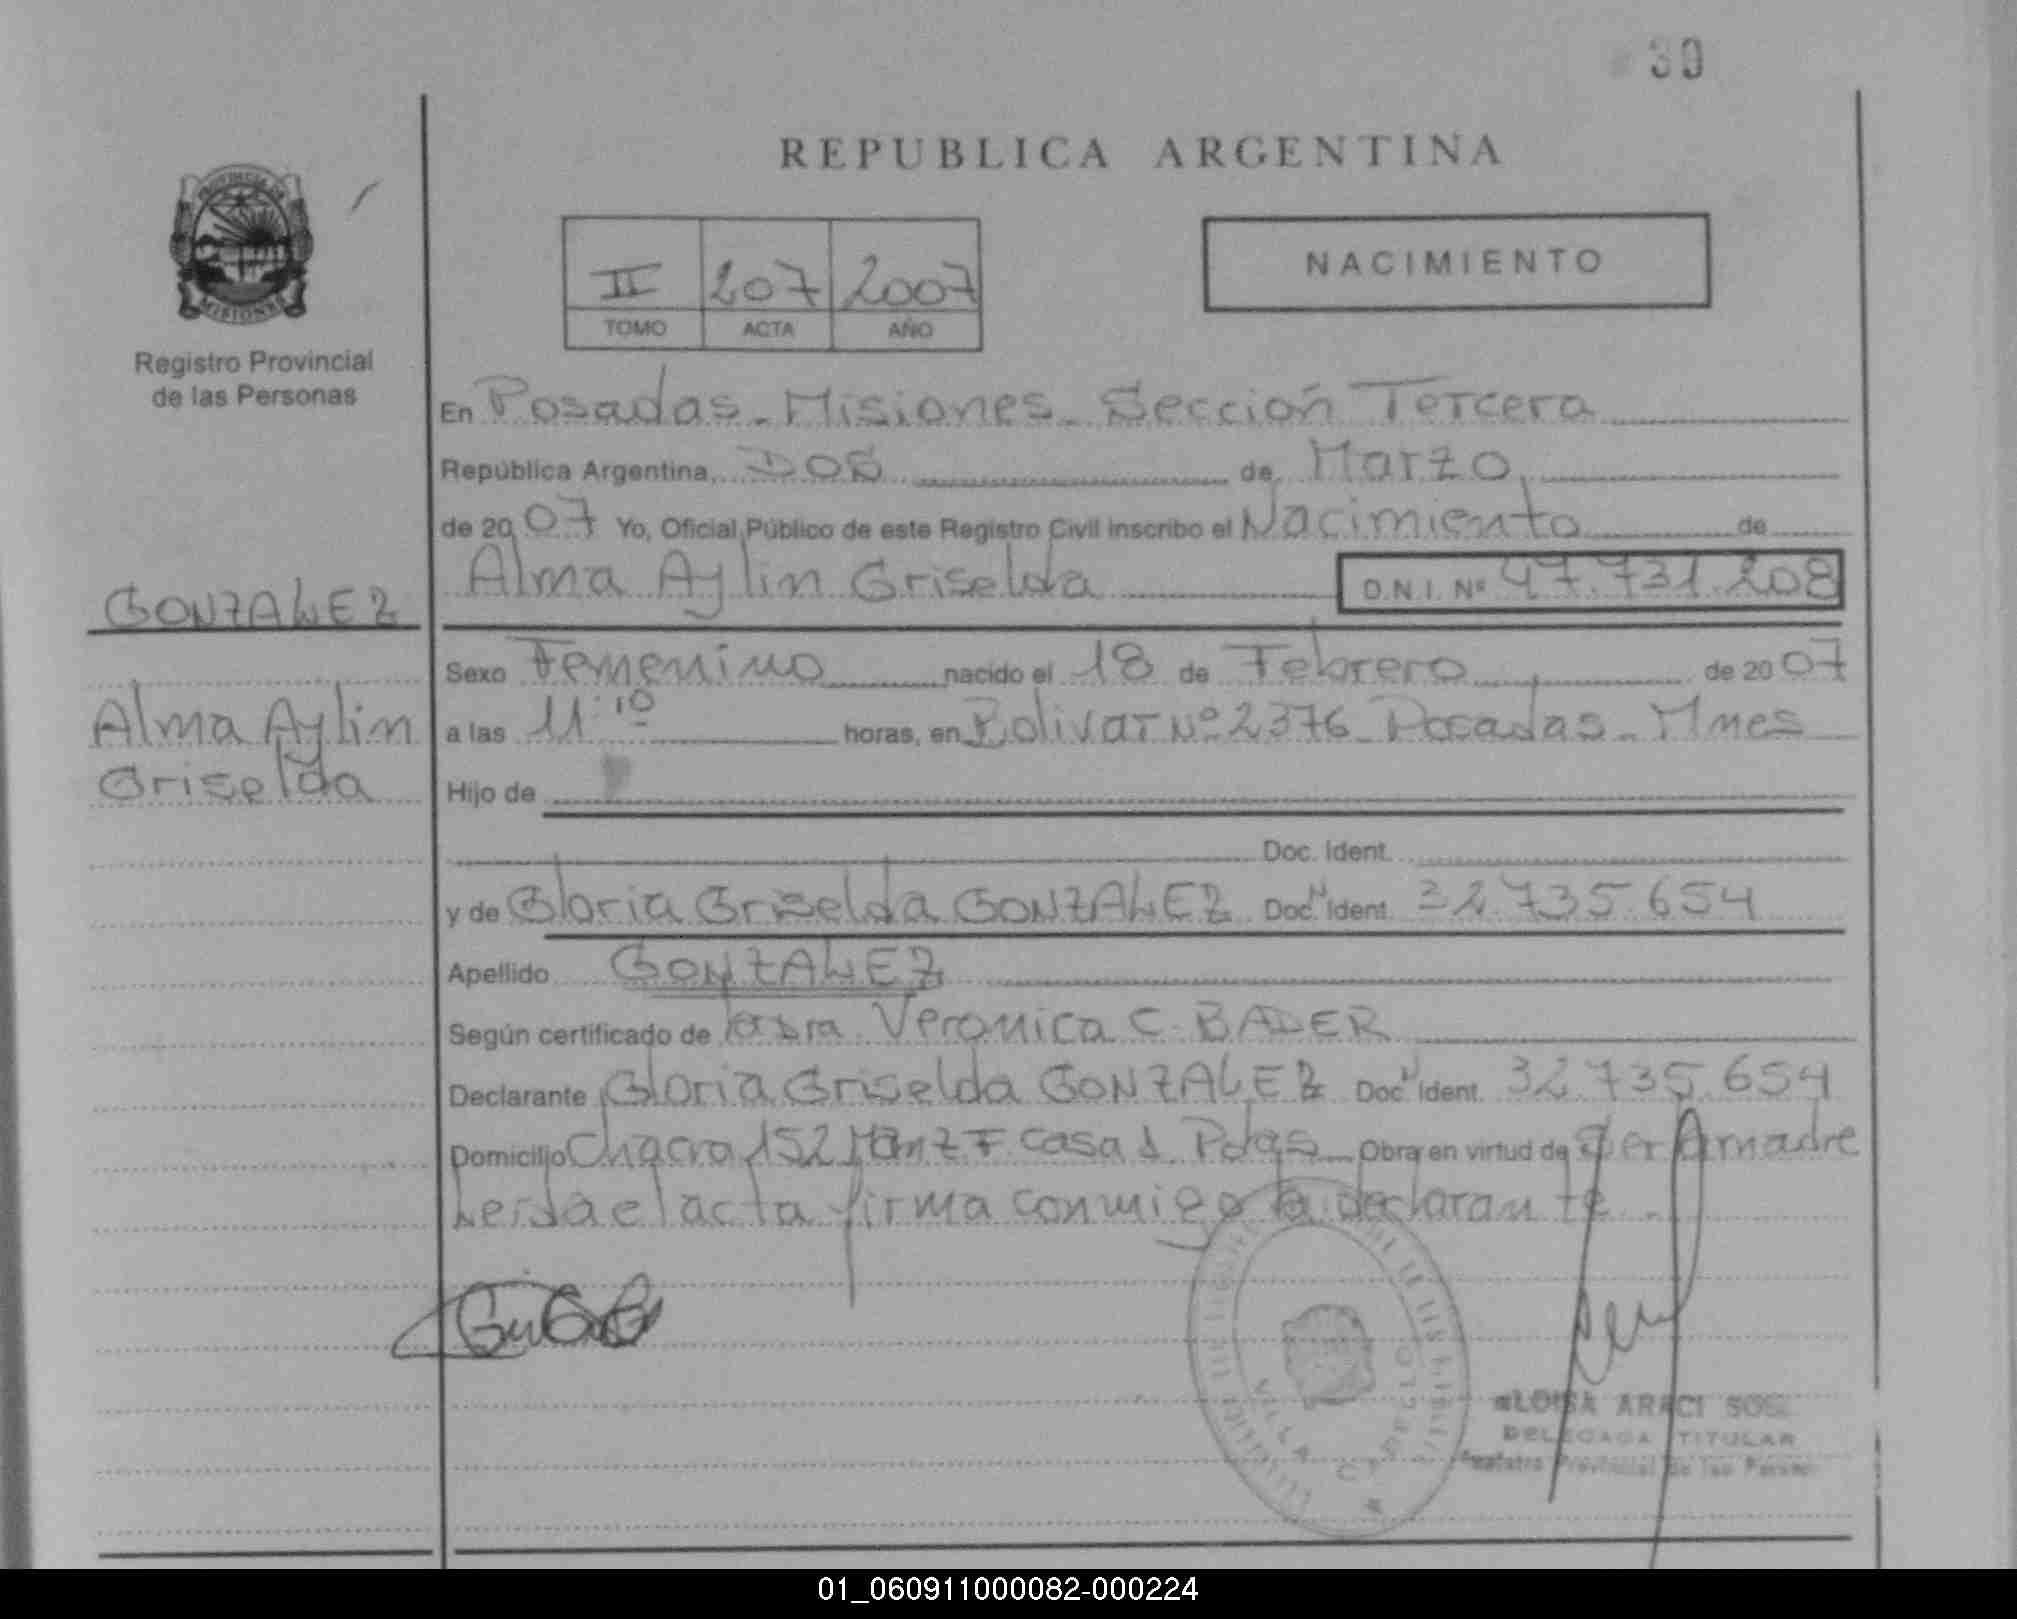 39
REPUBLICA ARGENTINA
PROVINCIA DE
MISIONES
Registro Provincial
de las Personas
II 207 2007
TOMO ACTA AÑO
NACIMIENTO
En Posadas - Misiones - Sección Tercera
República Argentina, DOS de Marzo
de 2007 Yo, Oficial Público de este Registro Civil inscribo el Nacimiento de
Alma Aylin Griselda D.N.I. Nº 47.731.208
GONZALEZ
Alma Aylin
Griselda
Sexo Femenino nacido el 18 de Febrero de 2007
a las 11:10 horas, en Bolivar Nº 2376 Posadas - Mnes
Hijo de
Doc. Ident.
y de Gloria Griselda GONZALEZ Doc. Ident. 32.735.654
Apellido GONZALEZ
Según certificado de Veronica C. BADER
Declarante Gloria Griselda GONZALEZ Doc. Ident. 32.735.654
Domicilio Chacra 152 Manz F casa 1 Pdas Obra en virtud de Ser madre
Leida el acta firma conmigo la declarante.
VILLA
ARACI
DELEGADA TITULAR
Registro Provincial de las
01_060911000082-000224